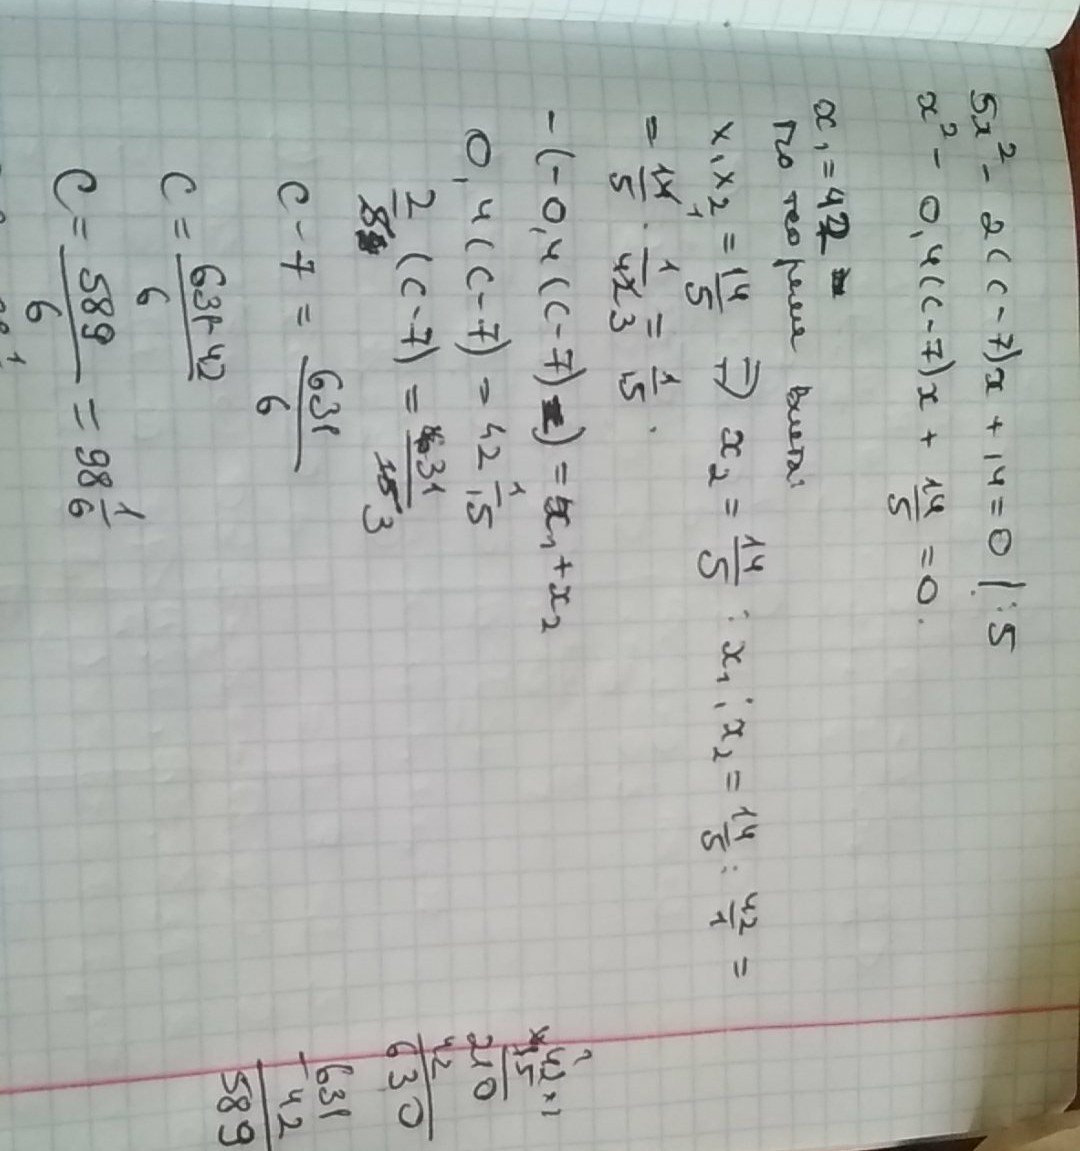 5x² - 2(c-7)x + 14 = 0 | :5
x² - 0,4(c-7)x + 14/5 = 0.
x₁ = 42
по теореме Виета:
x₁x₂ = 14/5 ⇒ x₂ = 14/5 : x₁; x₂ = 14/5 : 42/1 =
= 14/5 · 1/42 3 = 1/15.
-(-0,4(c-7)) = x₁ + x₂
0,4(c-7) = 42 1/15
2/5 (c-7) = 631/15 3
c-7 = 631/6
c = 631-42/6
c = 589/6 = 98 1/6
42
15
210
42
630
631
- 42
589